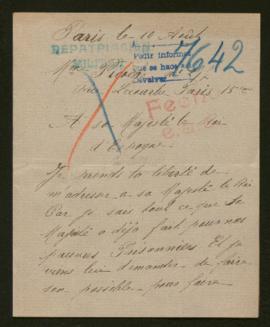 Paris le 10 Août
REPATRIACION
MILITAR
Pedir informes
que se hace
Devolver
7642
Rue Lecourbe Paris 15
A sa Majesté le Roi
d'Espagne
Je prends la liberté de
m'adresser a sa Majesté le Roi
Car je sais tout ce que Sa
Majesté a déjà fait pour nos
pauvres Prisonniers Et je
viens lui demander de faire
son possible pour faire